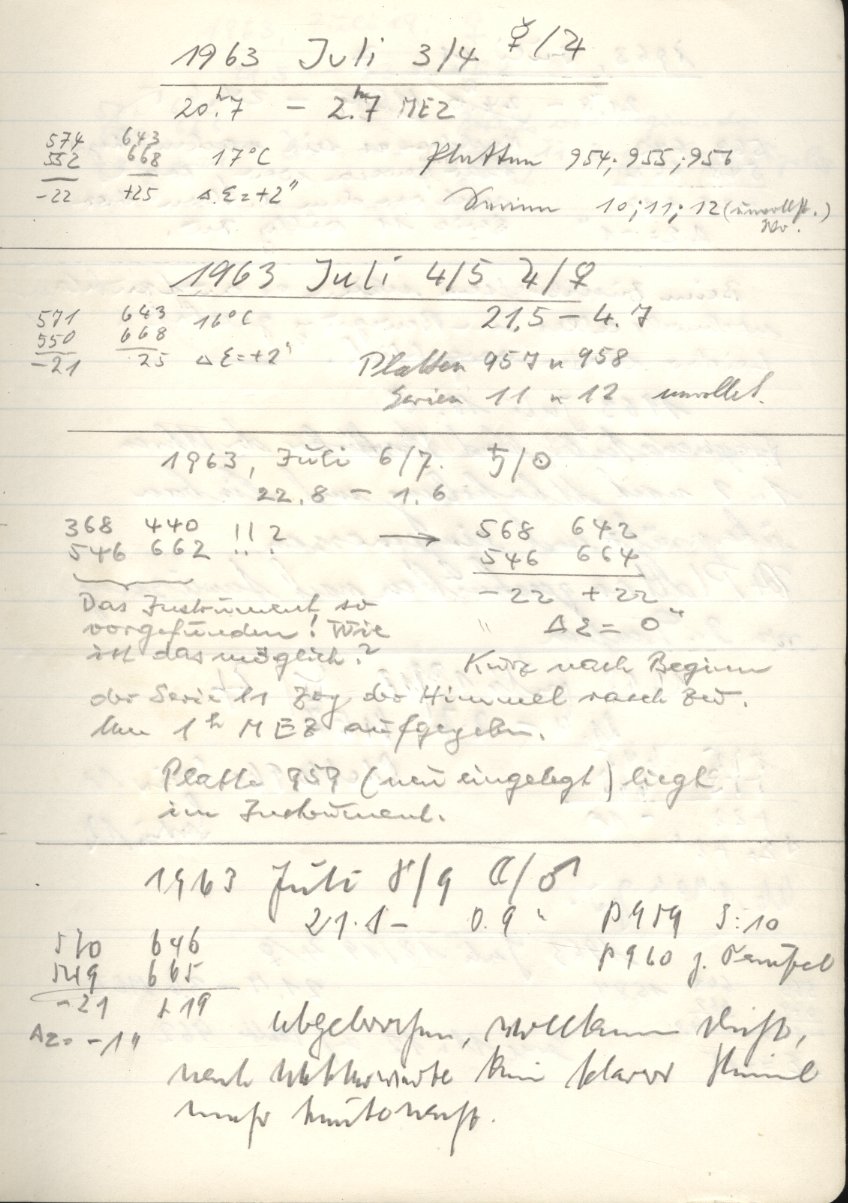 1963 Juli 3/4 ☿/♃
20ʰ.7 – 2ʰ.7 MEZ
574 643
552 668 17°C Platten 954; 955; 956
-22 +25 Δ.Σ=+2" Serien 10; 11; 12 (unvollst.)
1963 Juli 4/5 ♃/♀
571 643 16°C 21.5 – 4.7
550 668
-21 25 ΔΣ=+2" Platten 957 u 958
Serien 11 u 12 unvollst.
1963, Juli 6/7. ♄/☉
22.8 – 1.6
368 440 !!? → 568 642
546 662 546 664
-22 +22
Das Instrument so
vorgefunden! Wie ΔΣ = 0"
ist das möglich? Kurz nach Beginn
der Serie 11 zog der Himmel rasch zu.
Um 1ʰ MEZ aufgegeben.
Platte 959 (neu eingelegt) liegt
im Instrument.
1963 Juli 8/9 ☾/♂
21.1 – 0.9 P959 S:10
570 646 P960
549 665
-21 +19
ΔΣ= -1"
abgebrochen,
nach klarer Himmel
mehr